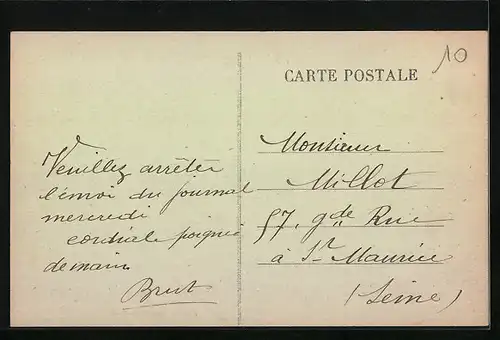 CARTE POSTALE
10
Veuillez arrêter
l'envoi du journal
mercredi
cordiale poignée
de main
Brut
Monsieur
Millot
57, gde Rue
à St Maurice
(Seine)